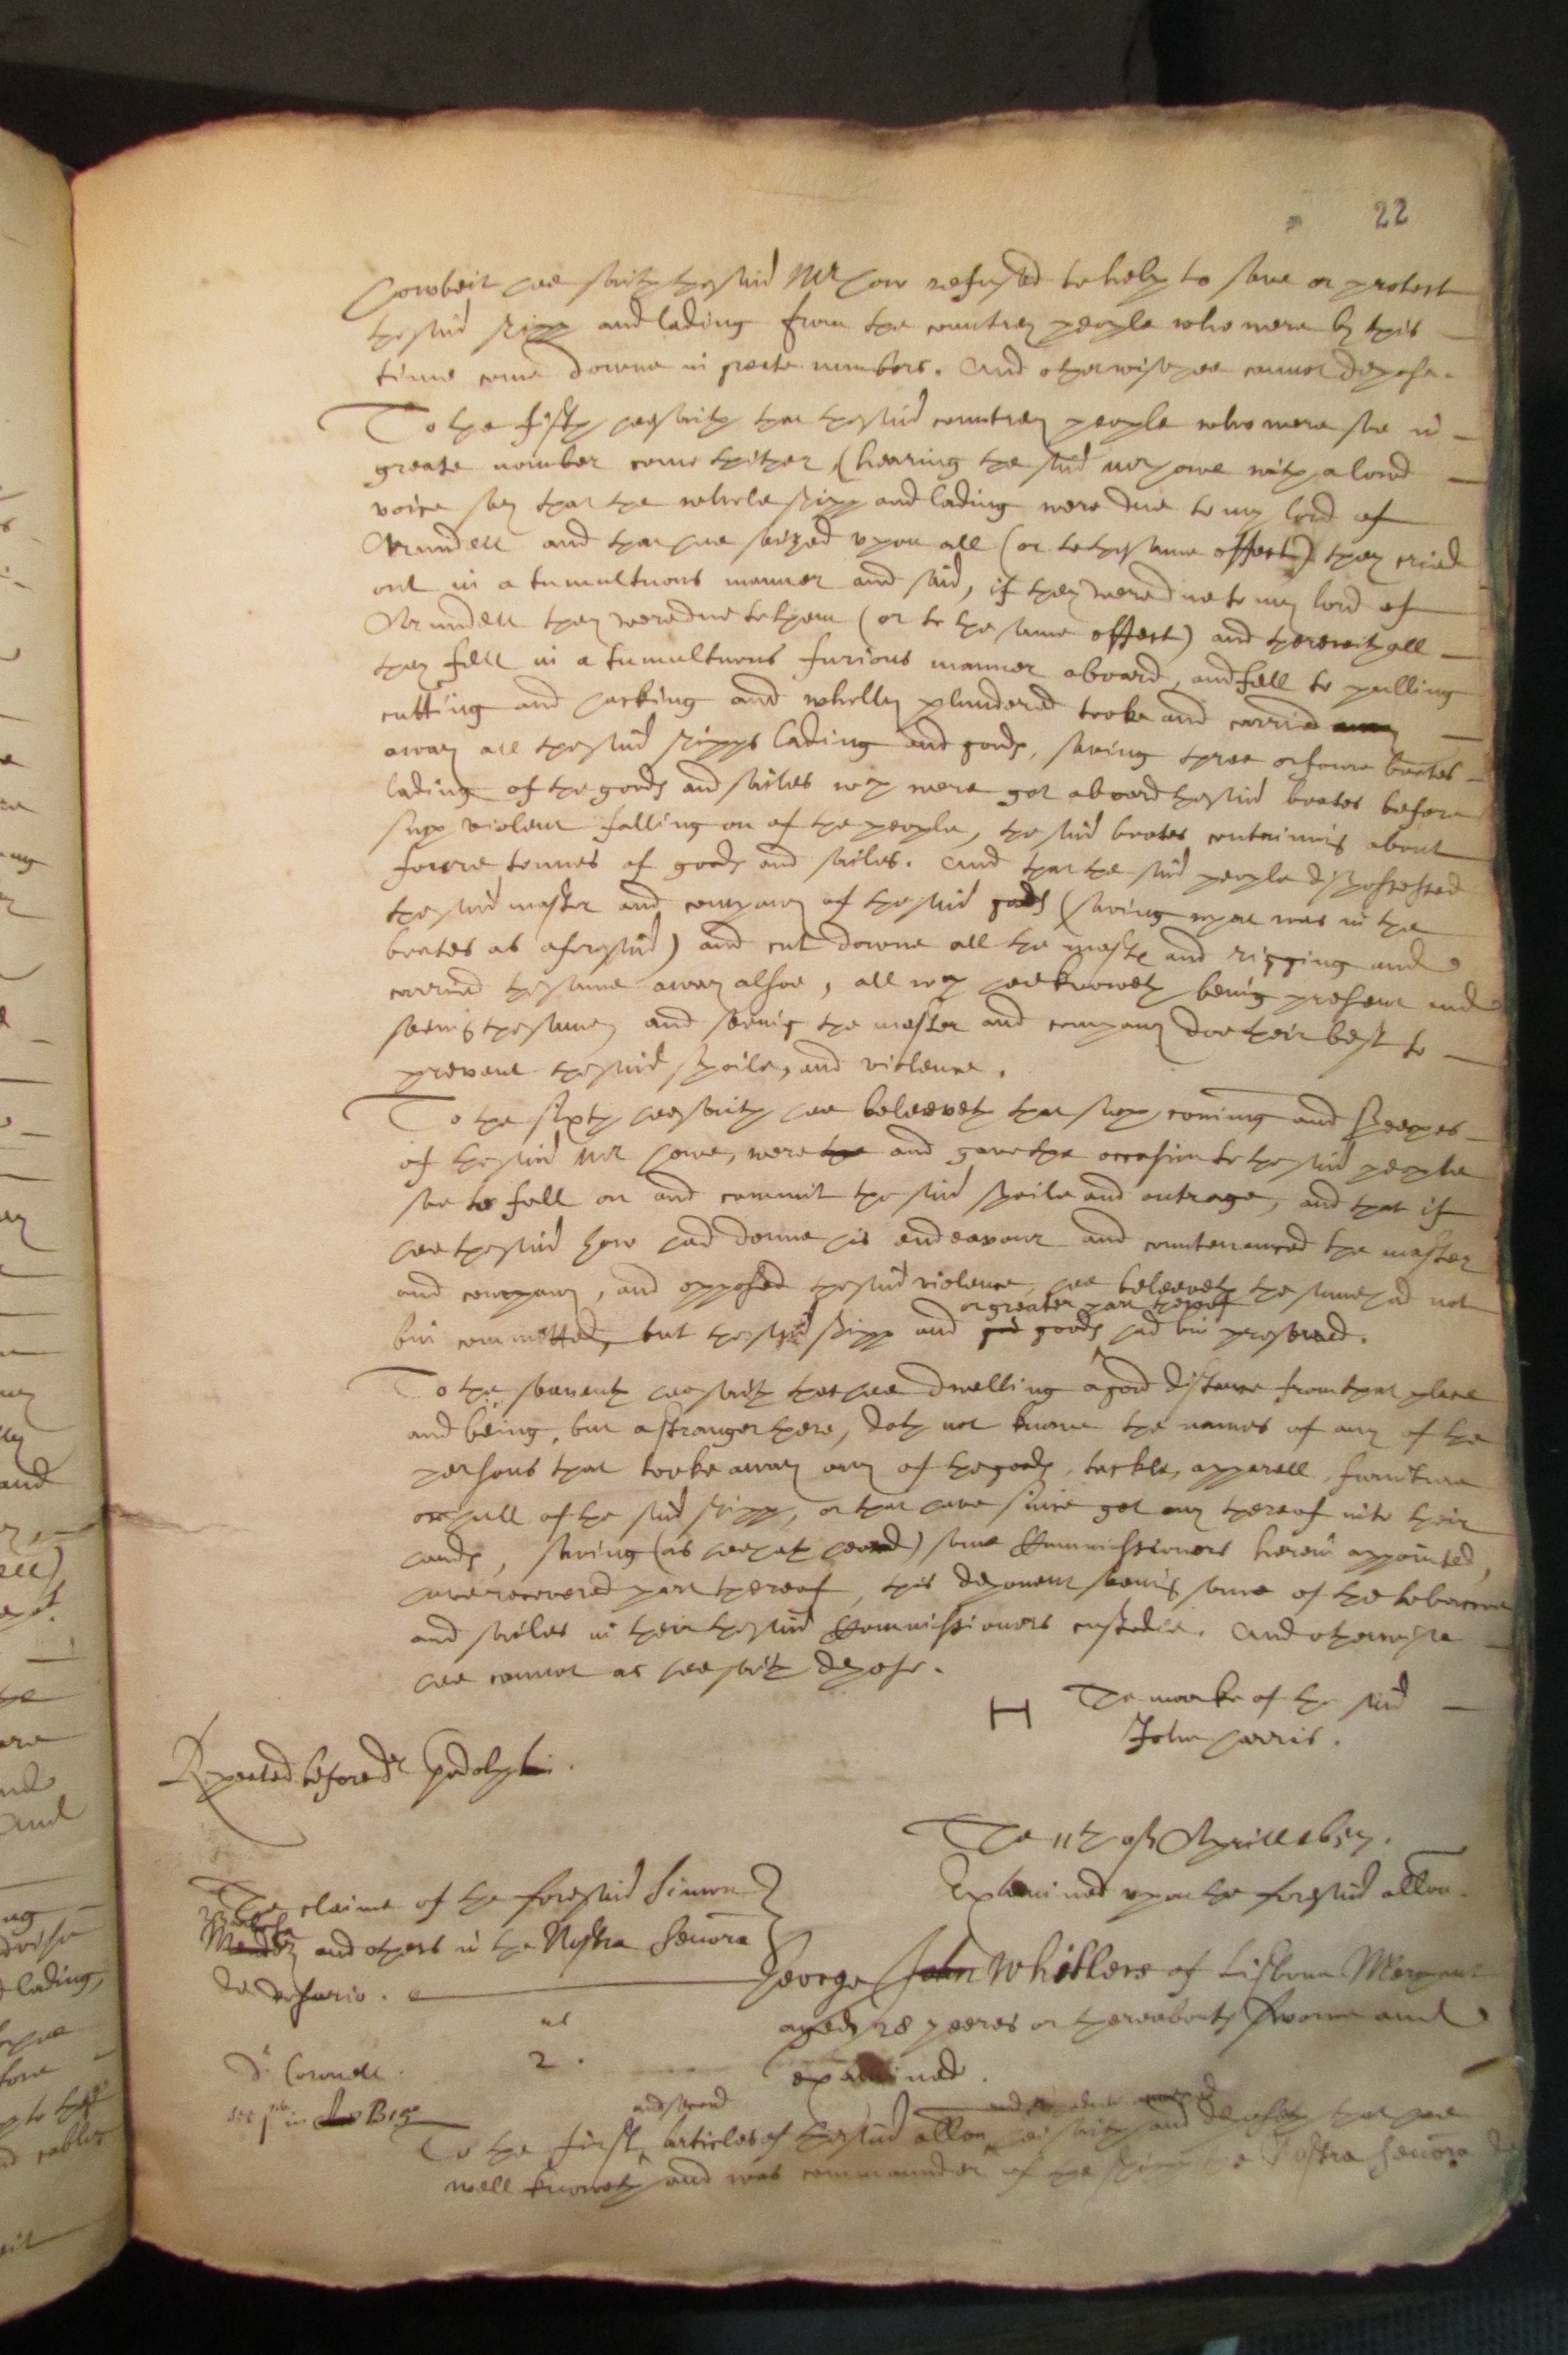 22
howbeit hee saith the said Mr how refused to help to save or protect
the said shipp and lading from the countrey people who were by this
time come downe in greate numbers. And otherwise hee cannot depose.
To the fifth hee saith that the said countrey people who were soe in
greate number come thither (hearing the said mr howe with a lowd
voice say that the whole shipp and lading were due to my lord of
Arundell and that hee seized upon all (or to the same effect) they cried
out in a tumultuous manner and said, if they were due to my lord of
Arundell they were due to them (or to the same effect) and therewithall
they fell in a tumultuous furious manner aboard, and fell to pulling
cutting and hacking and wholly plundered tooke and carried away
away all the said shipps lading and goods, saving three or foure boates
lading of the goods and sailes wch were got aboard the said boates before
such violent falling on of the people, the said boates containing about
foure tonnes of goods and sailes. And that the said people dispossessed
the said master and company of the said goods (saving what was in the
boates as aforesaid) and cut downe all the masts and rigging and
carried the same away alsoe, all wch hee knoweth being present and
seeing the same, and seeing the master and company doe their best to
prevent the said spoile, and violence.
To the sixth hee saith hee beleeveth that such coming and speeches
of the said Mr howe, were the and gave the occasion to the said people
soe to fall on and commit the said spoile and outrage, and that if
hee the said how had donne his endeavour and countenanced the master
and company, and opposed the said violence, hee beleeveth the same had not
or greater part thereof
bin committed, but the said shipp and goods had bin preserved.
To the seaventh hee saith that hee dwelling a good distance from that place
and being but a stranger there, doth not knowe the names of any of the
persons that tooke away any of the goods, tackle, apparell, furniture
or hull of the said shipp, or that have since got any thereof into their
hands, saving (as hee hath heard) some Commissioners herein appointed,
have recovered part thereof, this deponent seeing some of the tobaccoe
and sailes in their the said Commissioners custodie. And otherwise
hee cannot as hee saith depose.
H The marke of the said
John harris.
Repeated before dr Godolphin.
The 11th of Aprill 1657.
The claime of the foresaid Simon
and others in the Nostra Senora
de Rosario.
Examined upon the foresaid allon.
George John Whitlers of Lisbone Merchant
aged 28 yeeres or thereabouts sworne and
examined.
2.
To the first and second articles of the said allon hee saith and deposeth that hee
well knoweth and was commander of the shipp the Nostra Senora de